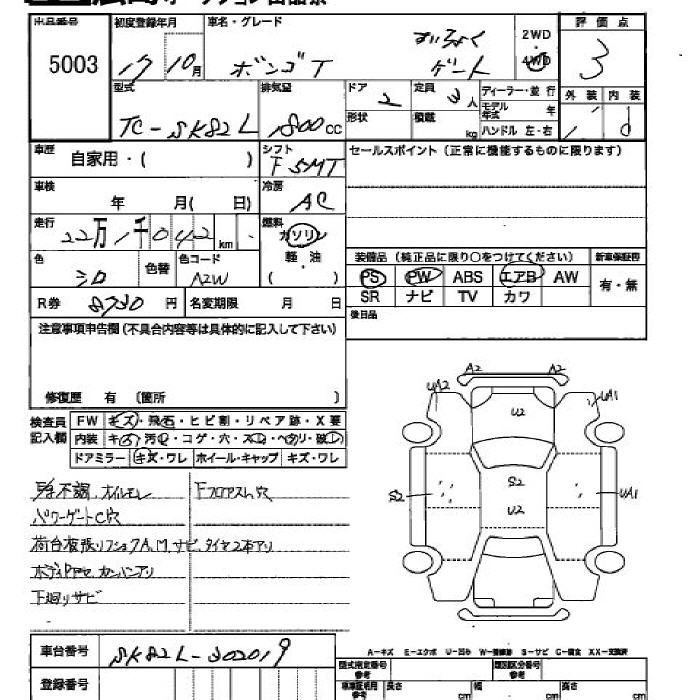 出品番号 初度登録年月 車名・グレード 2WD 評価点
5003 17 10月 ボンゴT ゲート 4WD 3
型式 排気量 ドア 定員 ディーラー・並行 外装 内装
TC-SK82L 1800cc 2 3人 モデル年式 年
形状 積載 kg ハンドル 左・右
車歴 自家用・( ) シフト F5MT セールスポイント(正常に機能するものに限ります)
車検 年 月( 日) 冷房 AC
走行 22万1千042km 燃料 ガソリン
軽・油
( )
色 シロ 色替 色コード A2W
装備品(純正品に限り○をつけてください) 新車保証書
PS PW ABS エアB AW 有・無
SR ナビ TV カワ
R券 8730円 名変期限 月 日
後日品
注意事項申告欄(不具合内容等は具体的に記入して下さい)
修復歴 有 〔箇所 〕
検査員記入欄 FW キズ・飛石・ヒビ割・リペア跡・X要
内装 キズ・汚・コゲ・穴・スレ・ヘタリ・破レ
ドアミラー キズ・ワレ ホイール・キャップ キズ・ワレ
不調、オイルモレ Fフロアスム穴
パワーゲートC穴
荷台板張リフシュクA,M,サビ、タイヤ2本アリ
ボディPトセ、カンバンアリ
下廻リサビ
A2 A2
UA2 U2 UA1
S2 S2 UA1
U2
A-キズ E-エクボ U-凹み W-修理跡 S-サビ C-腐食 XX-交換済
車台番号 SK82L-302019
型式指定番号 参考 類別区分番号 参考
登録番号 車車証明用 参考 長さ cm 幅 cm 高さ cm